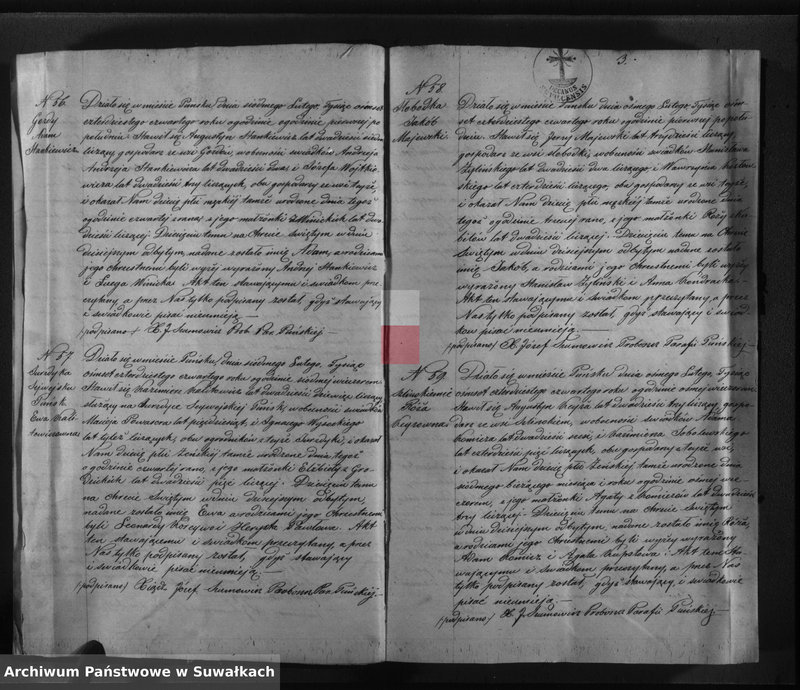 N 56.
Gordy
Adam
Stankiewicz
Działo się w mieście Puńsku, dnia siódmego Lutego, Tysiąc ośmset
czterdziestego czwartego roku o godzinie pierwszej po
południu. Stawił się Augustyn Stankiewicz lat dwadzieścia siedm
liczący gospodarz ze wsi w obecności świadków Andrzeja
Andrzeja Stankiewicza lat dwadzieścia i Józefa Wojtkie
wicza lat dwadzieścia trzy liczących, obu gospodarzy ze wsi tejże,
i okazał Nam dziecię płci męzkiej tamże urodzone dnia tegoż
o godzinie czwartej z rana, z jego małżonki lat dwa
dzieścia liczącej. Dziecięciu temu na Chrzcie świętym w dniu
dzisiejszym odbytym, nadane zostało imię Adam, a rodzicami
jego chrzestnemi byli wyżej wyrażony Andrzej Stankiewicz
i Akt ten stawającemu i świadkom prze
czytany, a przez Nas tylko podpisany został, gdyż stawający
i świadkowie pisać nieumieją.
(podpisano) X. J. Szumowicz Prob. Par. Puńskiej
N 57.
Ewa
Działo się w mieście Puńsku, dnia siódmego Lutego, Tysiąc
ośmset czterdziestego czwartego roku o godzinie siódmej wieczorem.
Stawił się Kazimierz lat dwadzieścia dziewięć liczący
służący na Puńsk, w obecności świadków
Macieja lat pięćdziesiąt, i Ignacego Wysockiego
lat tyleż liczących, obu ogrodników z tejże i okazał
Nam dziecię płci żeńskiej tamże urodzone dnia tegoż
o godzinie czwartej rano, z jego małżonki Elżbiety z Gro
dzickich lat dwadzieścia pięć liczącej. Dziecięciu temu
na Chrzcie świętym w dniu dzisiejszym odbytym,
nadane zostało imię Ewa a rodzicami jego Chrzestnemi
byli Leonard i Akt
ten stawającemu i świadkom przeczytany, a przez
Nas tylko podpisany został, gdyż stawający
i świadkowie pisać nieumieją.
(podpisano) Xiądz Józef Szumowicz Proboszcz Par. Puńskiej
3.
N 58.
Słobódka
Jakób
Majewski
Działo się w mieście Puńsku dnia ósmego Lutego, Tysiąc ośm
set czterdziestego czwartego roku o godzinie pierwszej po połu
dniu. Stawił się Jerzy Majewski lat trzydzieści liczący,
gospodarz ze wsi Słobódki w obecności świadków Stanisława
Żylińskiego lat dwadzieścia dwa liczącego i Wawrzyńca
skiego lat czterdzieści liczącego, obu gospodarzy ze wsi tejże,
i okazał Nam dziecię płci męzkiej tamże urodzone dnia
tegoż o godzinie trzeciej rano, z jego małżonki Róży
lat dwadzieścia liczącej. Dziecięciu temu na Chrzcie
świętym w dniu dzisiejszym odbytym nadane zostało
imię Jakób, a rodzicami jego Chrzestnemi byli wyżej
wyrażony Stanisław Żyliński i Anna
Akt ten stawającemu i świadkom przeczytany, a przez
Nas tylko podpisany został, gdyż stawający i świad
kowie pisać nieumieją.
(podpisano) X. Józef Szumowicz Proboszcz Parafii Puńskiej
N 59.
Róża
Działo się w mieście Puńsku dnia ósmego Lutego, Tysiąc
ośmset czterdziestego czwartego roku o godzinie ósmej wieczorem.
Stawił się Augustyn lat dwadzieścia trzy liczący gospo
darz ze wsi w obecności świadków Adama
lat dwadzieścia sześć, i Kazimierza Sobolewskiego
lat czterdzieści pięć liczących, obu gospodarzy z tejże wsi,
i okazał Nam dziecię płci żeńskiej tamże urodzone dnia
siódmego bieżącego miesiąca i roku o godzinie ósmej wie
czorem, z jego małżonki Agaty z lat dwadzieścia
trzy liczącej. Dziecięciu temu na Chrzcie świętym
w dniu dzisiejszym odbytym, nadane zostało imię Róża,
a rodzicami jego chrzestnemi byli wyżej wyrażony
Adam i Agata Akt ten sta
wającemu i świadkom przeczytany, a przez Nas
tylko podpisany został, gdyż stawający i świadkowie
pisać nieumieją.
(podpisano) X. J. Szumowicz Proboszcz Parafii Puńskiej
Archiwum Państwowe w Suwałkach